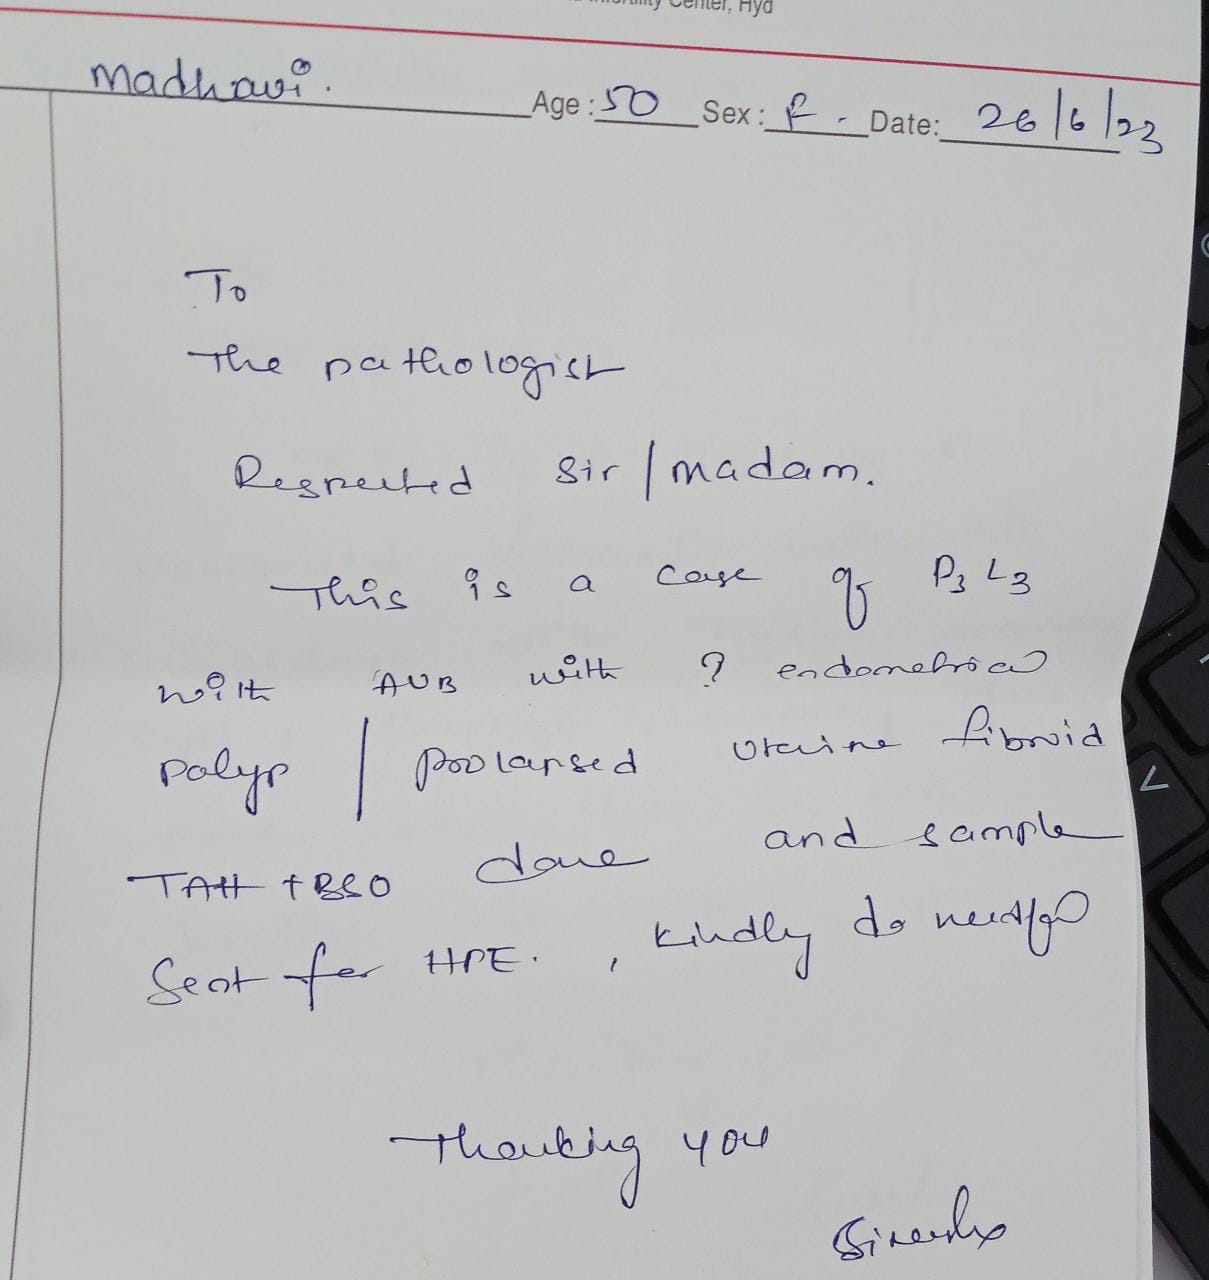 Center, Hyd
Madhavi. Age: 50 Sex: F. Date: 26/6/23
To
The pathologist
Respected Sir / madam.
This is a case of P3 L3
with AUB with ? endometrial
polyp / prolapsed uterine fibroid
TAH + BSO done and sample
sent for HPE. , kindly do needful
Thanking you